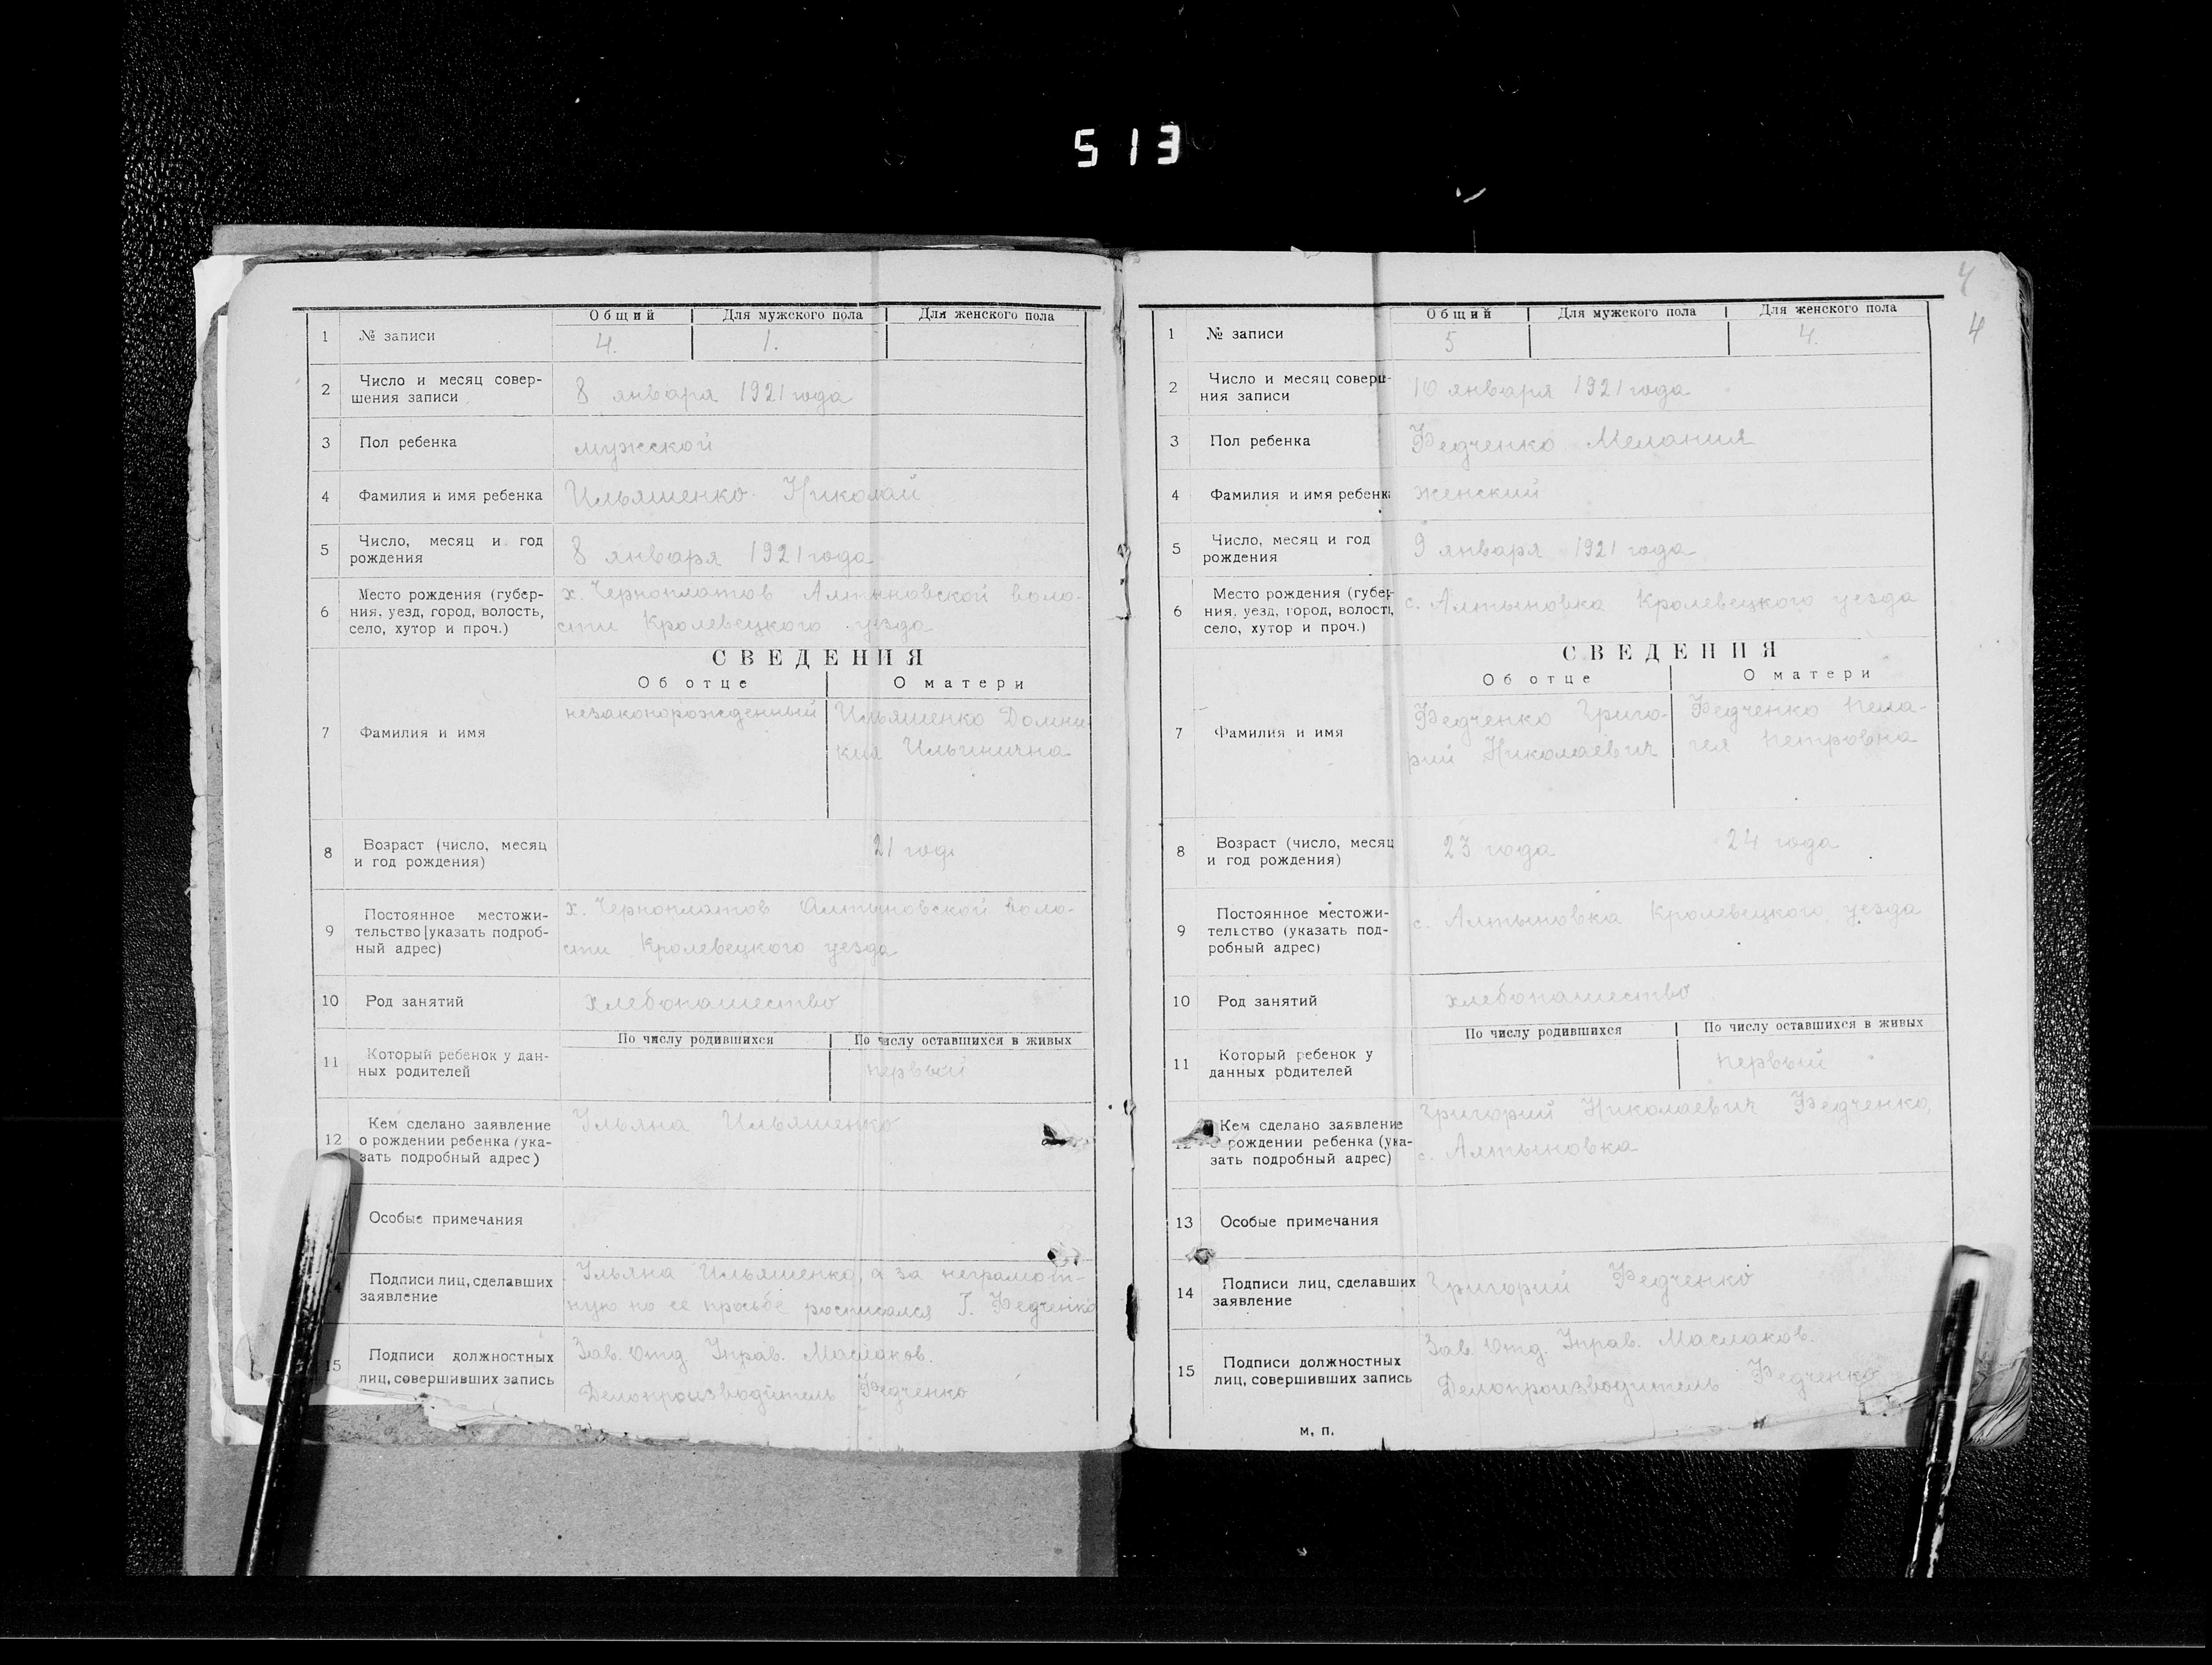 513
Общий Для мужского пола Для женского пола
1 № записи 4. 1.
2 Число и месяц совер-
шения записи 8 января 1921 года
3 Пол ребенка мужской
4 Фамилия и имя ребенка Ильяшенко Николай
5 Число, месяц и год
рождения 8 января 1921 года
6 Место рождения (губер-
ния, уезд, город, волость,
село, хутор и проч.) х. Черноплатов Алтыновской воло-
сти Кролевецкого уезда
СВЕДЕНИЯ
Об отце О матери
7 Фамилия и имя незаконорожденный Ильяшенко Домни
кия Ильинична
8 Возраст (число, месяц
и год рождения) 21 год
9 Постоянное местожи-
тельство [указать подроб-
ный адрес) х. Черноплатов Алтыновской воло-
сти Кролевецкого уезда
10 Род занятий хлебопашество
По числу родившихся По числу оставшихся в живых
11 Который ребенок у дан-
ных родителей первый
12 Кем сделано заявление
о рождении ребенка (ука-
зать подробный адрес) Ульяна Ильяшенко
Особые примечания
4 Подписи лиц, сделавших
заявление Ульяна Ильяшенко, а за неграмот-
ную по ее просьбе росписался Г. Федченко
15 Подписи должностных
лиц, совершивших запись Зав. Отд. Управ. Маслаков.
Делопроизводитель Федченко
4
4
Общий Для мужского пола Для женского пола
1 № записи 5 4.
2 Число и месяц соверш-
ния записи 10 января 1921 года
3 Пол ребенка Федченко Мелания
4 Фамилия и имя ребенк женский
5 Число, месяц и год
рождения 9 января 1921 года
6 Место рождения (губер-
ния, уезд, город, волость,
село, хутор и проч.) с. Алтыновка Кролевецкого уезда
СВЕДЕНИЯ
Об отце О матери
7 Фамилия и имя Федченко Григо- Федченко Пела-
рий Николаевич гея Петровна
8 Возраст (число, месяц
и год рождения) 23 года 24 года
9 Постоянное местожи-
тельство (указать под-
робный адрес) с. Алтыновка Кролевецкого уезда
10 Род занятий хлебопашество
По числу родившихся По числу оставшихся в живых
11 Который ребенок у
данных родителей первый
12 Кем сделано заявление
о рождении ребенка (ука-
зать подробный адрес) Григорий Николаевич Федченко,
с. Алтыновка
13 Особые примечания
14 Подписи лиц, сделавших
заявление Григорий Федченко
15 Подписи должностных
лиц, совершивших запись Зав. Отд. Управ. Маслаков.
Делопроизводитель Федченко
м. п.